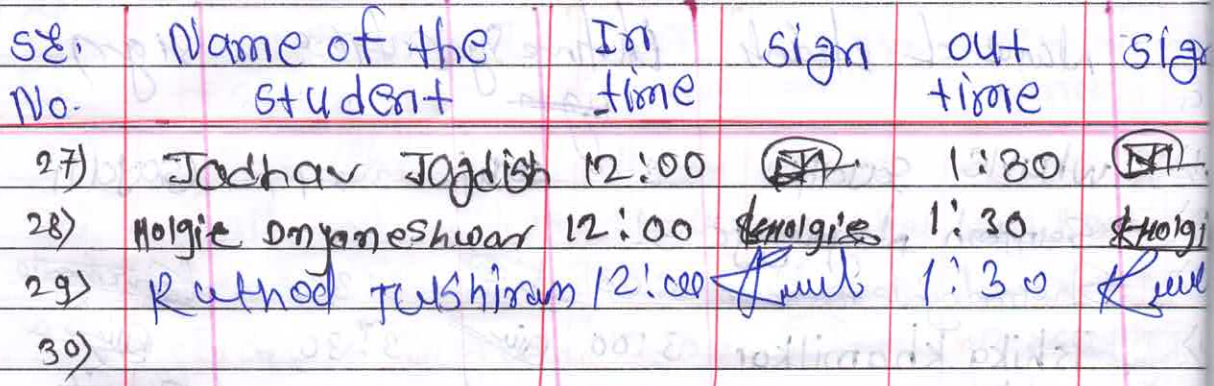 Sr. Name of the In sign out sig
No. student time time
27) Jadhav Jagdish 12:00 1:30
28) Holgie Dnyaneshwar 12:00 Holgie 1:30 Holgi
29) Rathod Tulshiram 12:00 1:30
30)